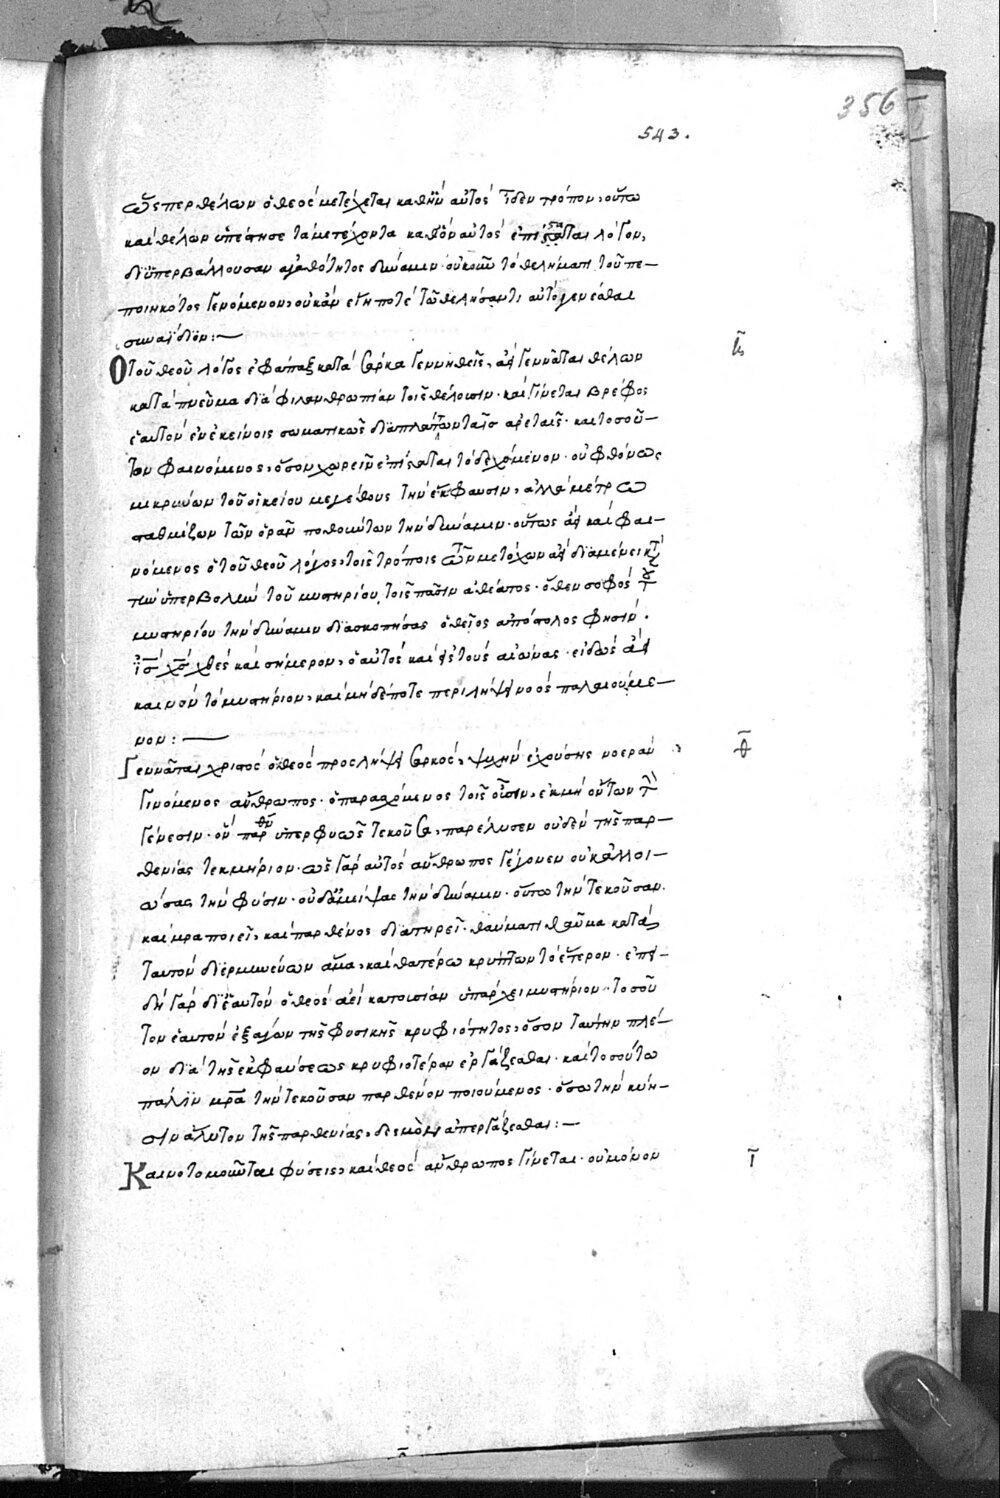 356
543.
ὥσπερ θέλων ὁ θεὸς μετέχεται καθ' ἣν αὐτὸς οἶδεν τρόπον, οὕτω
καὶ θέλων ὑπέστησε τὰ μετέχοντα καθ' ὃν αὐτὸς ἐπίσταται λόγον,
δι' ὑπερβάλλουσαν ἀγαθότητος δύναμιν· οὐκοῦν τὸ θελήματι τοῦ πε-
ποιηκότος γενόμενον, οὐκ ἂν εἴη ποτὲ τῷ θελήσαντι αὐτὸ γενέσθαι
συναΐδιον:—
Ὁ τοῦ θεοῦ λόγος ἐφάπαξ κατὰ σάρκα γεννηθεὶς, ἀεὶ γεννᾶται θέλων
κατὰ πνεῦμα διὰ φιλανθρωπίαν τοῖς θέλουσιν· καὶ γίνεται βρέφος
ἑαυτὸν ἐν ἐκείνοις σωματικῶς διαπλάττων ταῖς ἀρεταῖς· καὶ τοσοῦ-
τον φαινόμενος, ὅσον χωρεῖν ἐπίσταται τὸ δεχόμενον· οὐ φθόνως
μικρύνων τοῦ οἰκείου μεγέθους τὴν ἔκφανσιν, ἀλλὰ μέτρω
σταθμίζων τῶν ὁρᾶν ποθούντων τὴν δύναμιν· οὕτως ἀεὶ καὶ φαι-
νόμενος ὁ τοῦ θεοῦ λόγος, τοῖς τρόποις τῶν μετόχων ἀεὶ διαμένει κατὰ
τὴν ὑπερβολὴν τοῦ μυστηρίου τοῖς πᾶσιν ἀθέατος· ὅθεν σοφῶς τοῦ
μυστηρίου τὴν δύναμιν διασκοπήσας ὁ θεῖος ἀπόστολος φησίν.
ἰ̅ς̅ χ̅ς̅ χθὲς καὶ σήμερον, ὁ αὐτὸς καὶ εἰς τοὺς αἰώνας· εἰδὼς ἀεὶ
καινὸν τὸ μυστήριον, καὶ μηδέποτε περιλήψει νοὸς παλαιούμε-
νον:—
Γεννᾶται χριστὸς ὁ θεὸς προσλήψει σαρκὸς, ψυχὴν ἐχούσης νοερὰν
γινόμενος ἄνθρωπος· ὁ παρασχόμενος τοῖς οὖσιν, ἐκ μὴ ὄντων τὴν
γένεσιν· ὃν παρθν ὑπερφυῶς τεκοῦσα, παρέλυσεν οὐδὲν τῆς παρ-
θενίας τεκμήριον· ὡς γὰρ αὐτὸς ἄνθρωπος γέγονεν οὐκ ἀλλοι-
ώσας τὴν φύσιν· οὐδ' ἀμείψας τὴν δύναμιν· οὕτω τὴν τεκοῦσαν
καὶ μρα ποιεῖ, καὶ παρθένος διατηρεῖ· θαύματι θαῦμα κατὰ
ταυτὸν διερμηνεύων ἅμα, καὶ θατέρω κρύπτων τὸ ἕτερον· ἐπει-
δὴ γὰρ δι' ἑαυτὸν ὁ θεὸς ἀεὶ κατουσίαν ὑπάρχει μυστήριον· τοσοῦ
τον ἑαυτὸν ἐξαγων τῆς φυσικῆς κρυφιότητος, ὅσον ταύτην πλέ-
ον διὰ τῆς ἐκφάνσεως κρυφιοτέραν ἐργάζεσθαι· καὶ τοσούτω
πάλιν μρα τὴν τεκοῦσαν παρθένον ποιούμενος· ὅσω τὴν κύη-
σιν ἄλυτον τῆς παρθενίας, δεσμὸν ἀπεργάζεσθαι:—
Καινοτομοῦνται φύσεις, καὶ θεὸς ἄνθρωπος γίνεται· οὐ μόνον
η̅
θ̅
ι̅